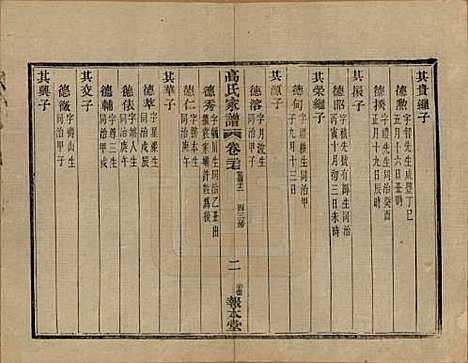 其貴繼子
德勲
字智先生咸豐丁巳
五月十六日登
德揆
字禮先生同治癸酉
正月十九日辰時
其振子
德韶
字機先號有鐸生同治
丙寅十月初三日未時
其榮繼子
德甸
字繼雍生同治甲
子九月十三日
其顯子
德溶
字月汶生
同治甲子
高氏家譜
卷二七
二
報本堂
德秀
字毓川生同治乙丑出
撫袁家緒許彀爲嗣
德仁
字顯本生
同治庚午
其華子
德苹
字星乘生
同治戊辰
德俵
字瑞人生
同治庚午
其交子
德輔
字尊三生
同治甲戌
其興子
德徵
字嵩山生
同治甲戌